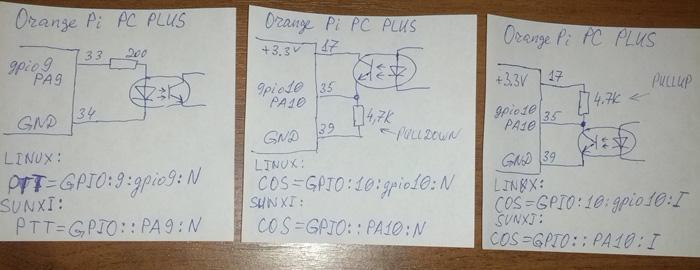 Orange Pi PC PLUS
33
200
gpio9
PA9
34
GND
LINUX:
PTT=GPIO:9:gpio9:N
SUNXI:
PTT=GPIO::PA9:N
Orange Pi PC PLUS
+3.3V
17
gpio10
PA10
35
4,7K
GND
39
PULLDOWN
LINUX:
COS=GPIO:10:gpio10:N
SUNXI:
COS=GPIO::PA10:N
Orange Pi PC PLUS
+3.3V
17
PULLUP
4.7K
gpio10
PA10
35
GND
39
LINUX:
COS=GPIO:10:gpio10:I
SUNXI:
COS=GPIO::PA10:I